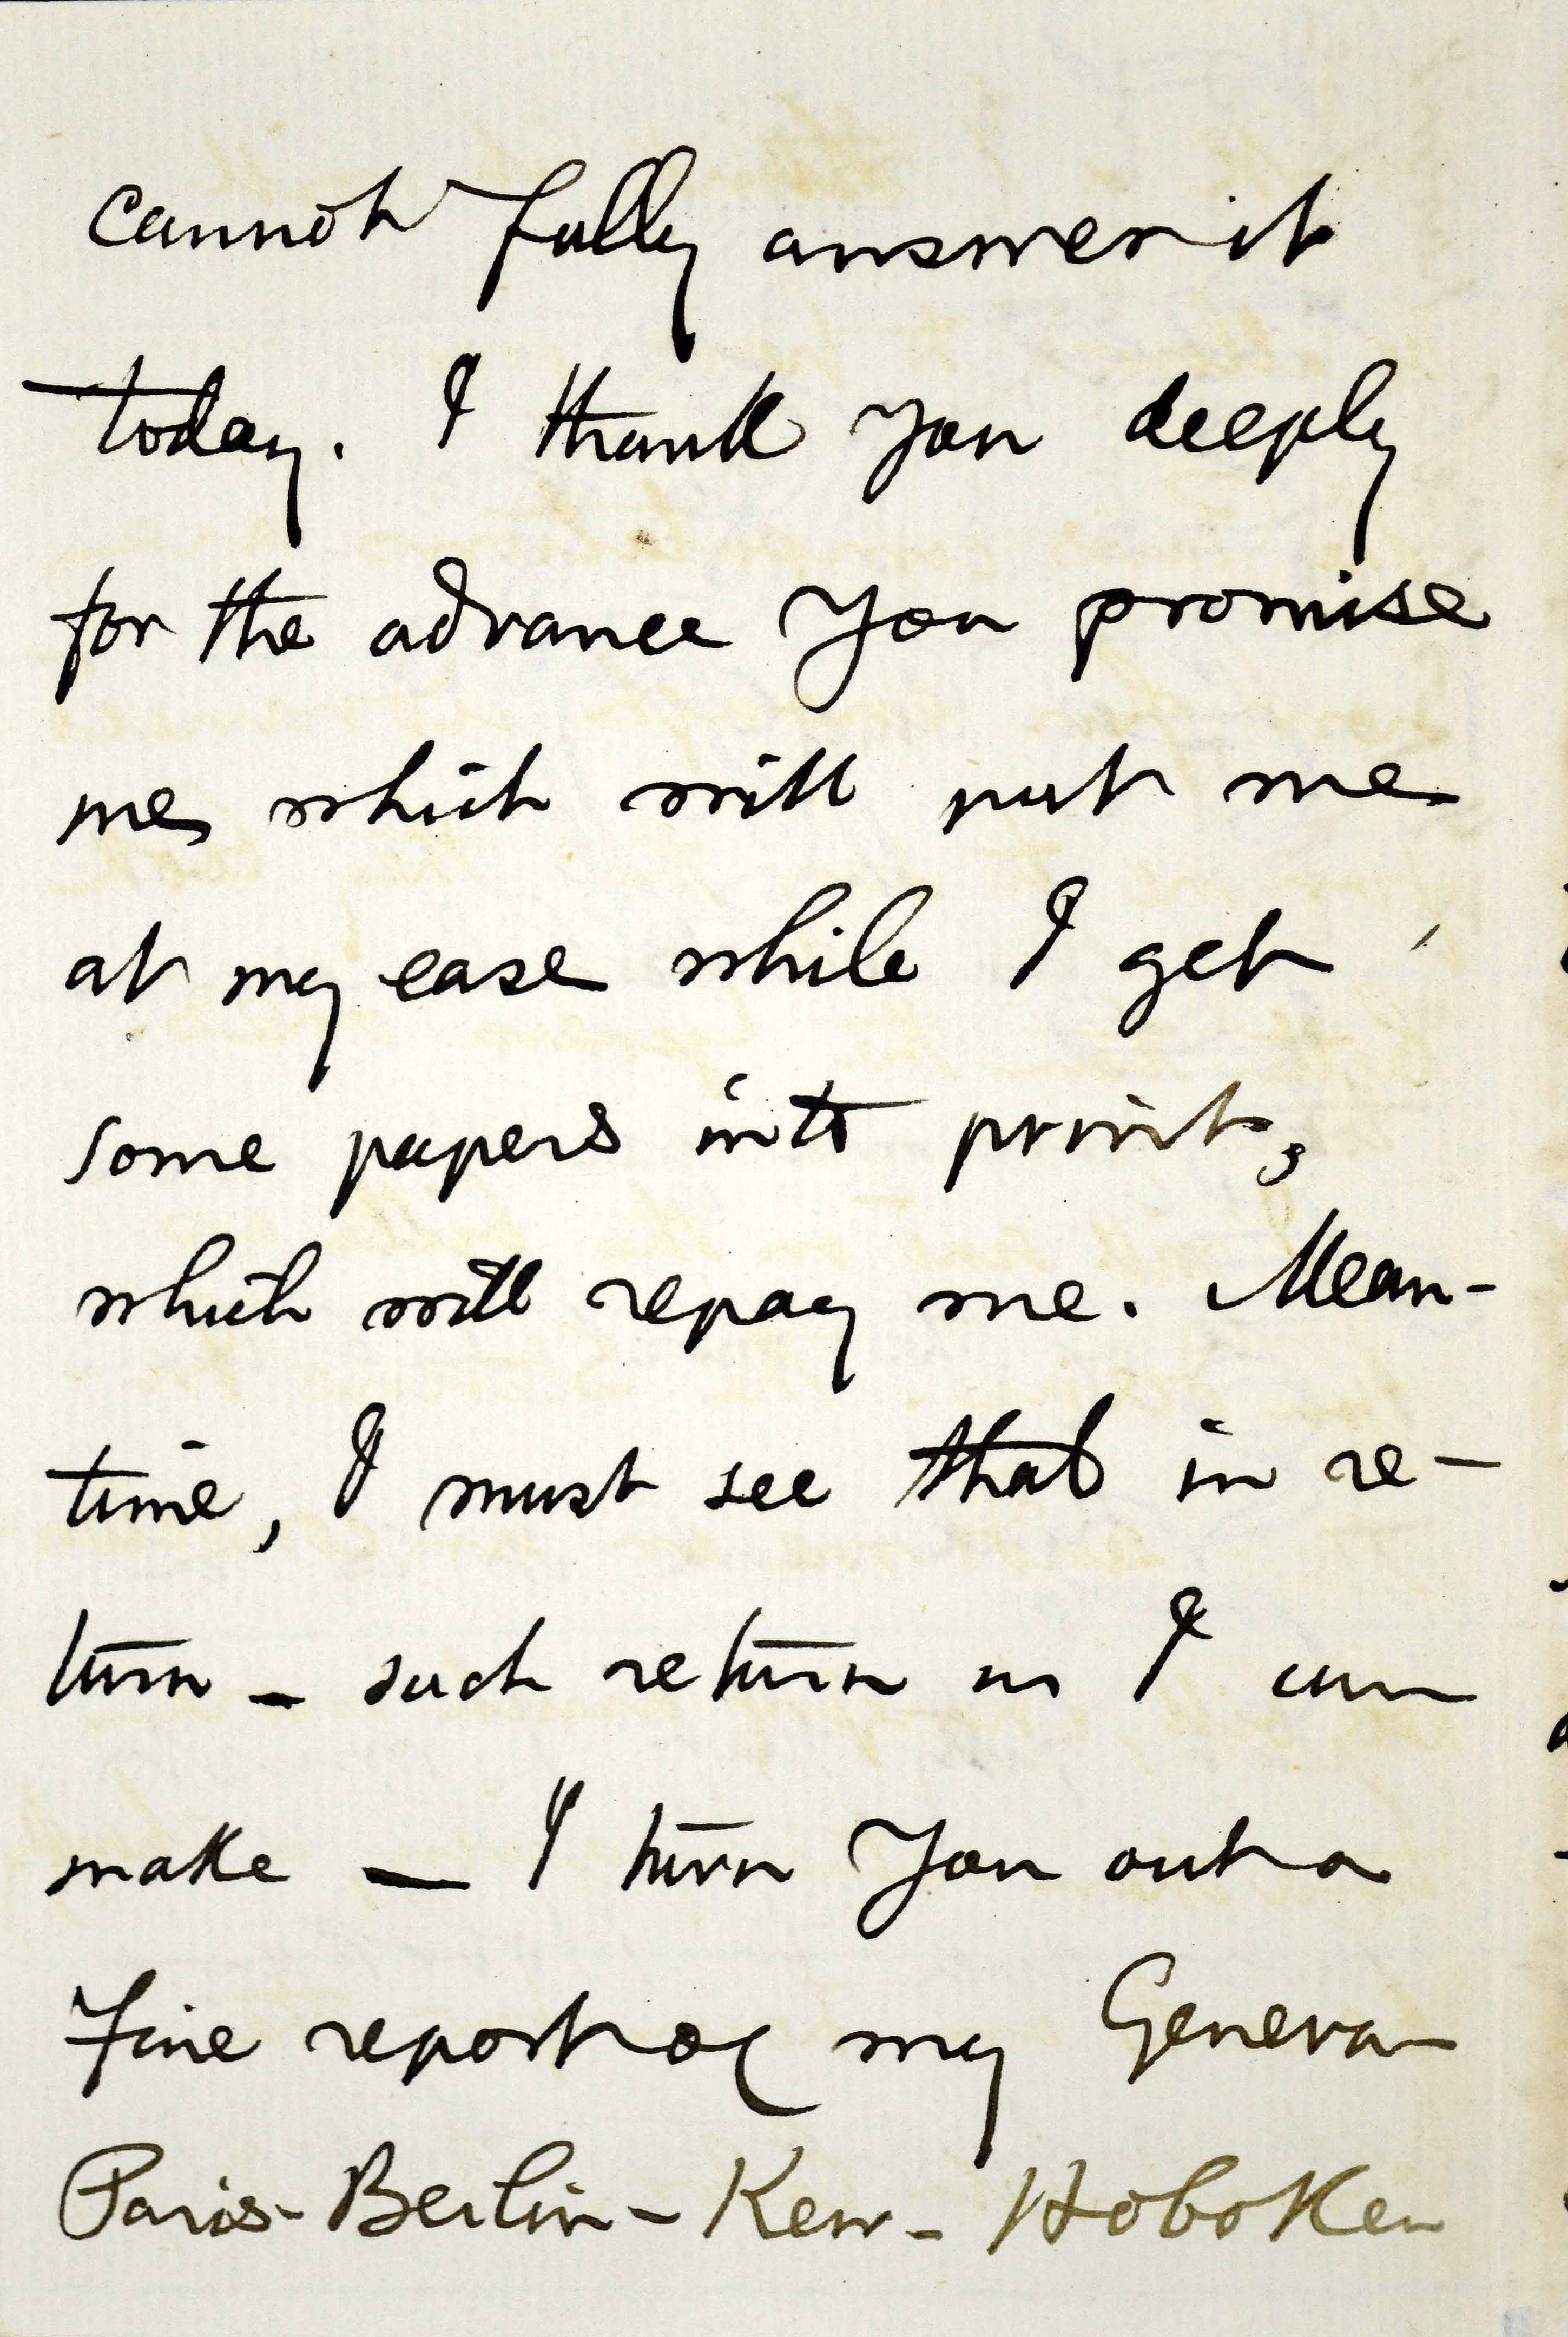 cannot fully answer it
today. I thank you deeply
for the advance you promise
me, which will put me
at my ease while I get
some papers into print,
which will repay me. Mean-
time, I must see that in re-
turn – such return as I can
make – I turn you out a
fine report of my Geneva
Paris - Berlin - Kew - Hoboken